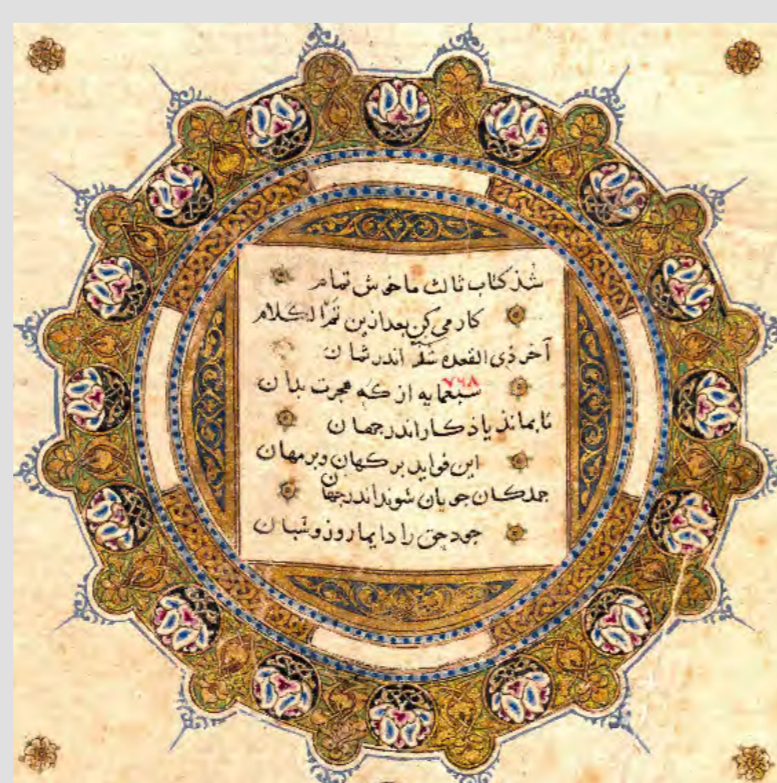 شذ کتاب ثالث ما خوش تمام
کار می کن بعد ازین تم الکلام
آخر ذی القعده شد اندر شان
۷۶۸
سبعمایه از که هجرت بدان
تا بماند یاذکار اندر جهان
این فواید بر کهان و بر مهان
جملکان جویان شوند اندر جهان
جود حق را دایما روز و شبان